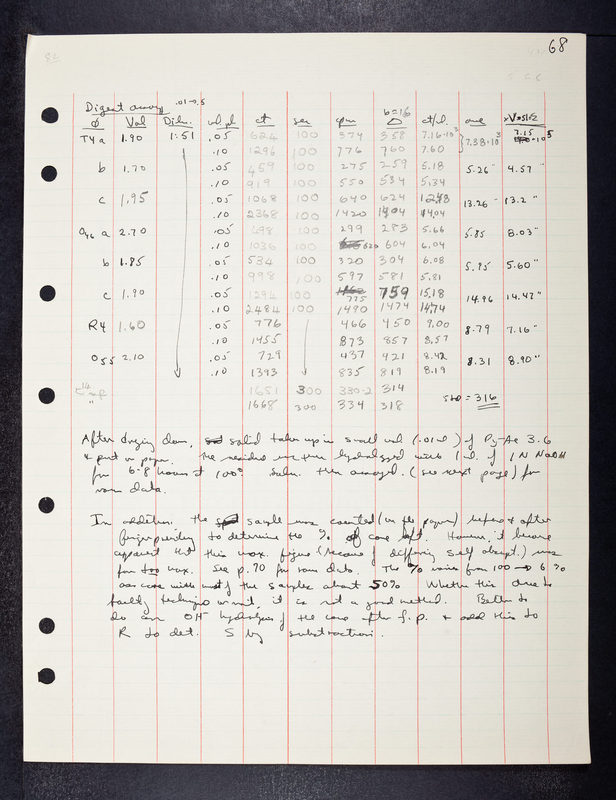 68
Digest assay .01→.5 b=16
Ø Vol Diln. vol pl ct sec cpm Δ ct/vl. ave xVol51/2
T4 a 1.90 1:51 .05 624 100 374 358 7.16×10³ 7.38×10³ 7.15 ×10⁵
.10 1296 100 776 760 7.60
b 1.70 .05 459 100 275 259 5.18 5.26 " 4.57 "
.10 919 100 550 534 5.34
c 1.95 .05 1068 100 640 624 12.48 13.26 " 13.2 "
.10 2368 100 1420 1404 14.04
a 2.70 .05 498 100 299 283 5.66 5.85 8.03 "
.10 1036 100 620 604 6.04
b 1.85 .05 534 100 320 304 6.08 5.95 5.60 "
.10 998 100 597 581 5.81
c 1.90 .05 1294 100 775 759 15.18 14.96 14.47 "
.10 2484 100 1490 1474 14.74
R4 1.60 .05 776 466 450 9.00 8.79 7.16 "
.10 1455 873 857 8.57
O55 2.10 .05 729 437 421 8.42 8.31 8.90 "
.10 1393 835 819 8.19
1651 300 330.2 314
" 1668 300 334 318 = 316
After drying down, solid taken up in small vol (.01 ml) of Py-Ac 3.6
& put on paper. The residue was then hydrolyzed with 1 ml. of 1 N NaOH
for 6-8 hours at 100°. Soln. then assayed. (see next page) for
raw data.
In addition, the sample was counted (on the paper) before & after
fingerprinting to determine the % of core left. However, it became
apparent that this max. figure (because of differing self absorpt.) was
far too max. See p. 70 for raw data. The % varies from 100 → 6 %
core with most of the samples about 50%. Whether this due to
faulty technique or not, it is not a good method. Better to
do an OH⁻ hydrolysis of the core after f.p. & add this to
R to det. S by subtraction.